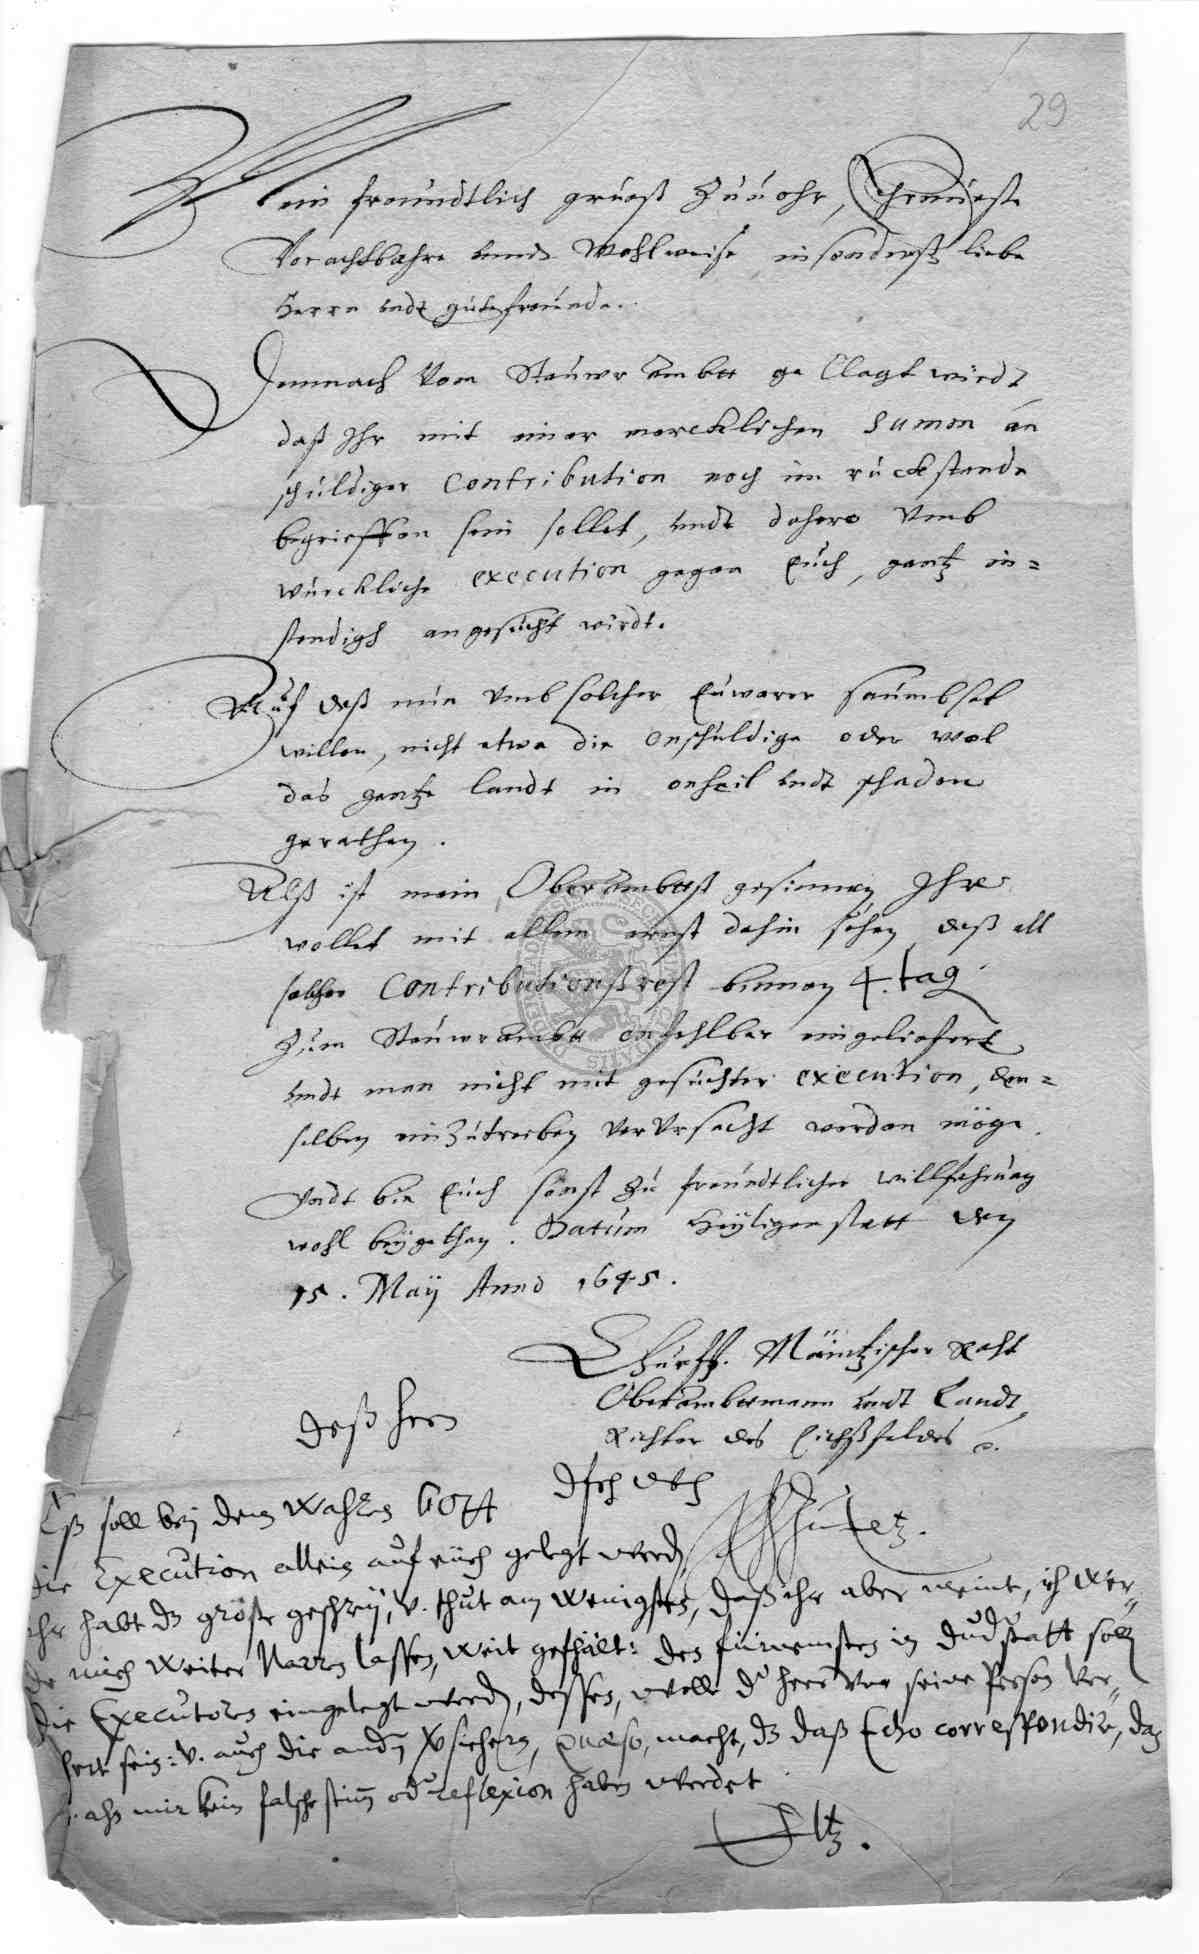 29
Mein freundtlich grueß Zuuohr, Ehrnueste
Vorachtbahre vnndt Wohlweise insonderß liebe
Herrn vndt gutefreunde.
Demnach Vom Steuwr Ambtt ge Clagt wirdt,
daß Ihr mit einer mercklichen Summen an
schuldiger Contribution noch im rückstande
begrieffen sein sollet, vndt dahero Vmb
würckliche execution gegen Euch, gantz in=
stendigh angesücht wirdt.
Auf deß nun Vmb solcher Euwerer saumbsal
willen, nicht etwa die Onschuldige oder wol
das gantze landt in onheil vndt schaden
gerathen.
Alß ist mein OberAmbttß gesinnen Ihr
wollet mit allem ernst dahin sehen, deß all
solcher Contributionßrest binnen 4. tag
Zum Steuwrambtt onfehlbar eingeliefert
vndt man nicht mit gesuchter execution, den=
selben einZutreiben VerVrsacht werden möge.
Vndt bin Euch sonst Zu freundtlicher willfahrung
wohl beygethan. Datum Heyligenstatt den
15. Maij Anno 1645.
Churfh. Mäintzischer Raht
OberAmbttmann vndt Landt,
Richter des Eichßfeldes
Deß hern
Eß soll bey dem Wahren Gott
die Execution allein auf euch gelegt werden
ihr habt dz größte geschrey, v. thut am Wenigsten, daß ihr aber meint, ich wer-
de mich Weiter Narren lassen, weit gefehlt: den fürnemsten in Dudstatt soll
die Executores eingelegt werden, dessen, wolle der herr vor seine Person Ver-
sichert sein: v. auch die andern Versichern, quaeso, macht, dz daß Echo correspondir, daz
alß mir kein falsche stim oder reflexion haben werdet
Eltz.